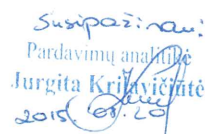 Susipažinau:
Pardavimų analitikė
Jurgita Krilavičiūtė
2015. 01. 20